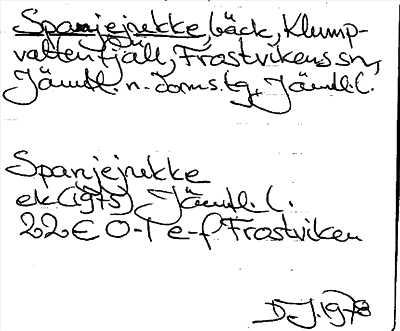 Spanjejukke bäck, Klump-
vattenfjäll, Frostvikens sn,
Jämtl. n. doms.tg, Jämtl.l.
Spanjejukke
ek (1975) Jämtl. l.
22E 0-1 e-f Frostviken
DJ. 1978